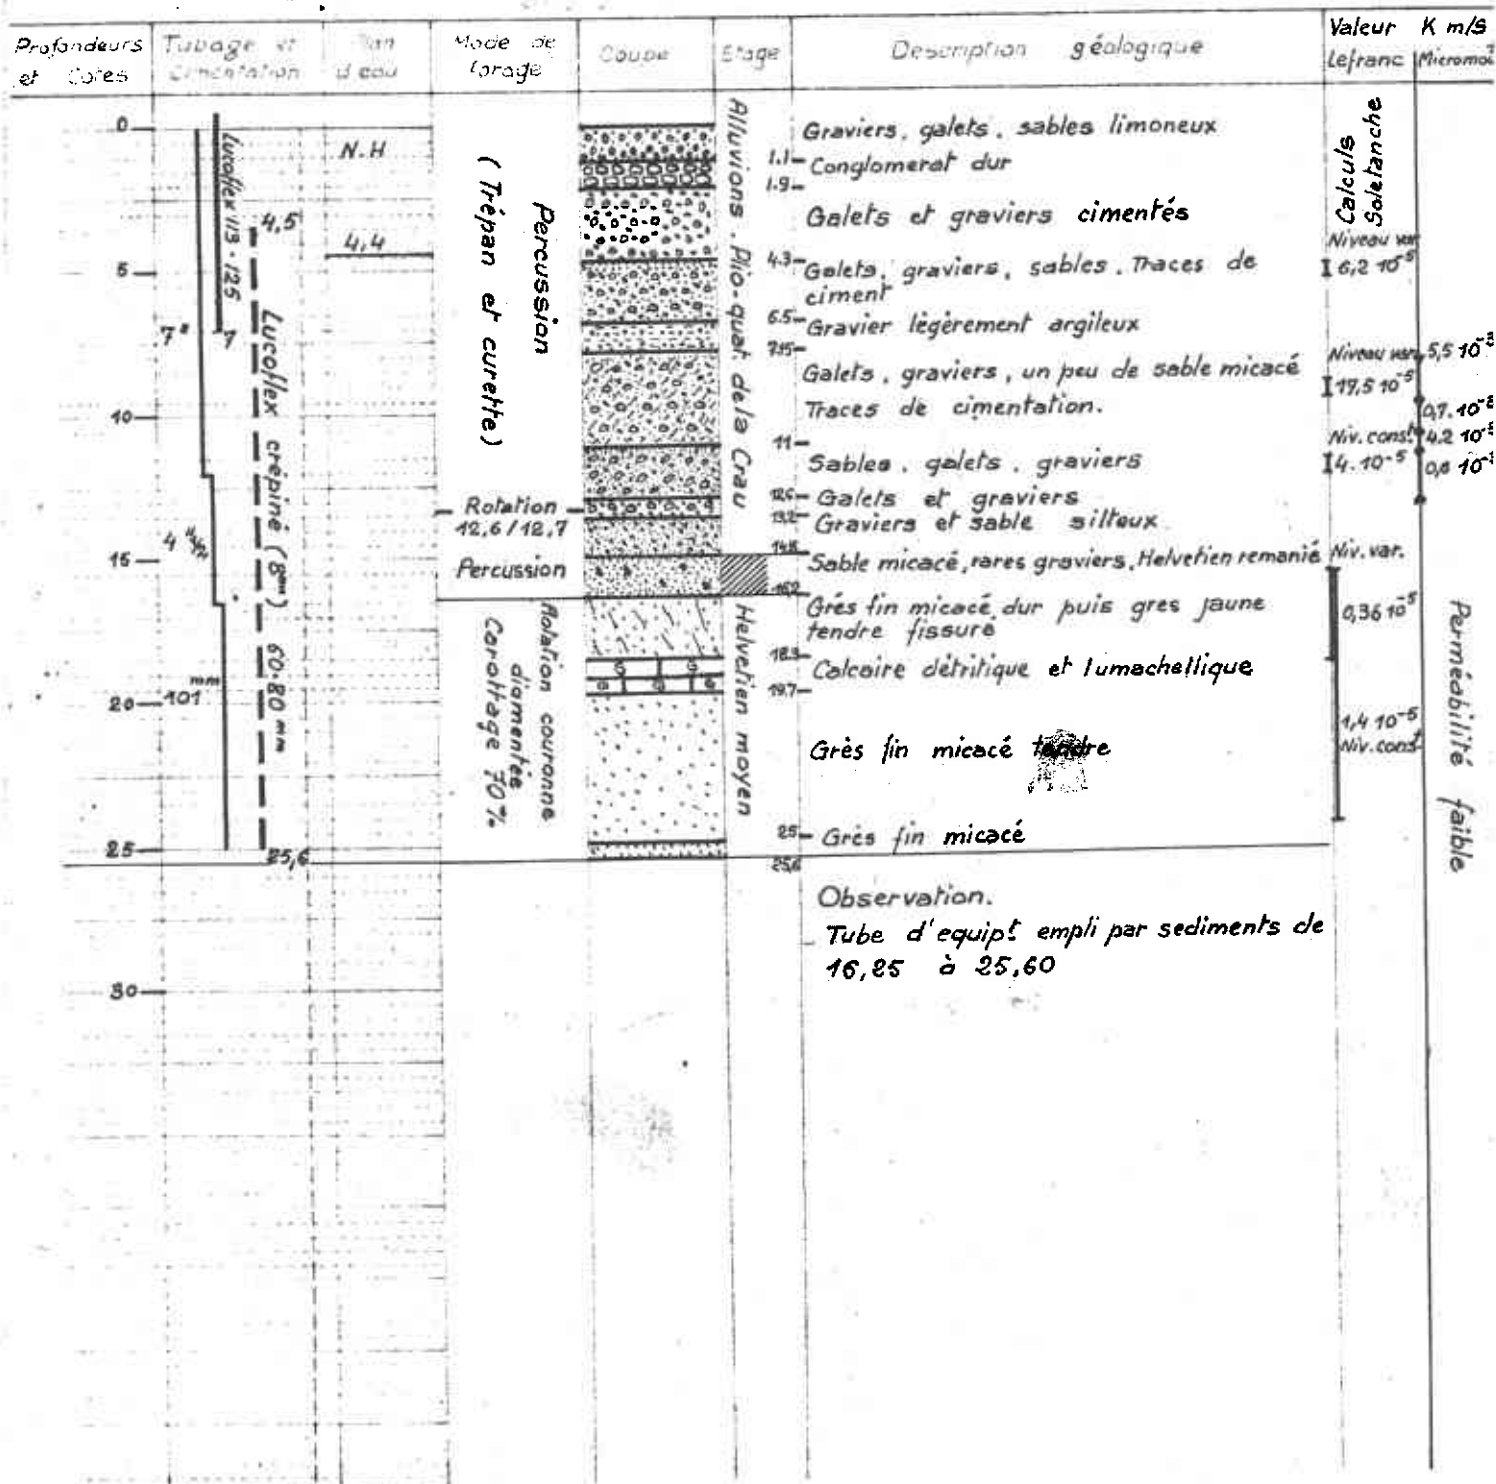 Profondeurs et Cotes
Tubage et Cimentation
Plan d'eau
Mode de forage
Coupe
Etage
Description géologique
Valeur K m/s
Lefranc
0
5
10
15
20
25
30
Lucoflex 113-125
4,5
7"
7
Lucoflex crépiné (8mm) 60-80mm
101 mm
25,6
N.H
4,4
Percussion
(Trépan et curette)
Rotation
12,6/12,7
Percussion
Rotation couronne
diamentée
Carottage 70%
Alluvions Plio-quat de la Crau
Helvetien moyen
Graviers, galets, sables limoneux
1.1 Conglomerat dur
1.9
Galets et graviers cimentés
4.3 Galets, graviers, sables. Traces de
ciment
6.5 Gravier légèrement argileux
7.15
Galets, graviers, un peu de sable micacé
Traces de cimentation.
11
Sables, galets, graviers
12.6 Galets et graviers
13.2 Graviers et sable silteux
14.8
Sable micacé, rares graviers, Helvetien remanié
16.2
Grés fin micacé dur puis gres jaune
tendre fissuré
18.3
Calcaire détritique et lumachellique
19.7
Grès fin micacé tendre
25 Grés fin micacé
25,6
Observation.
Tube d'equipt empli par sediments de
16,25 à 25,60
Calculs
Soletanche
Niveau var
6,2 10-5
Niveau var
17,5 10-5
Niv. const
4. 10-5
Niv. var.
0,36 10-5
1,4 10-5
Niv. const
Perméabilité faible